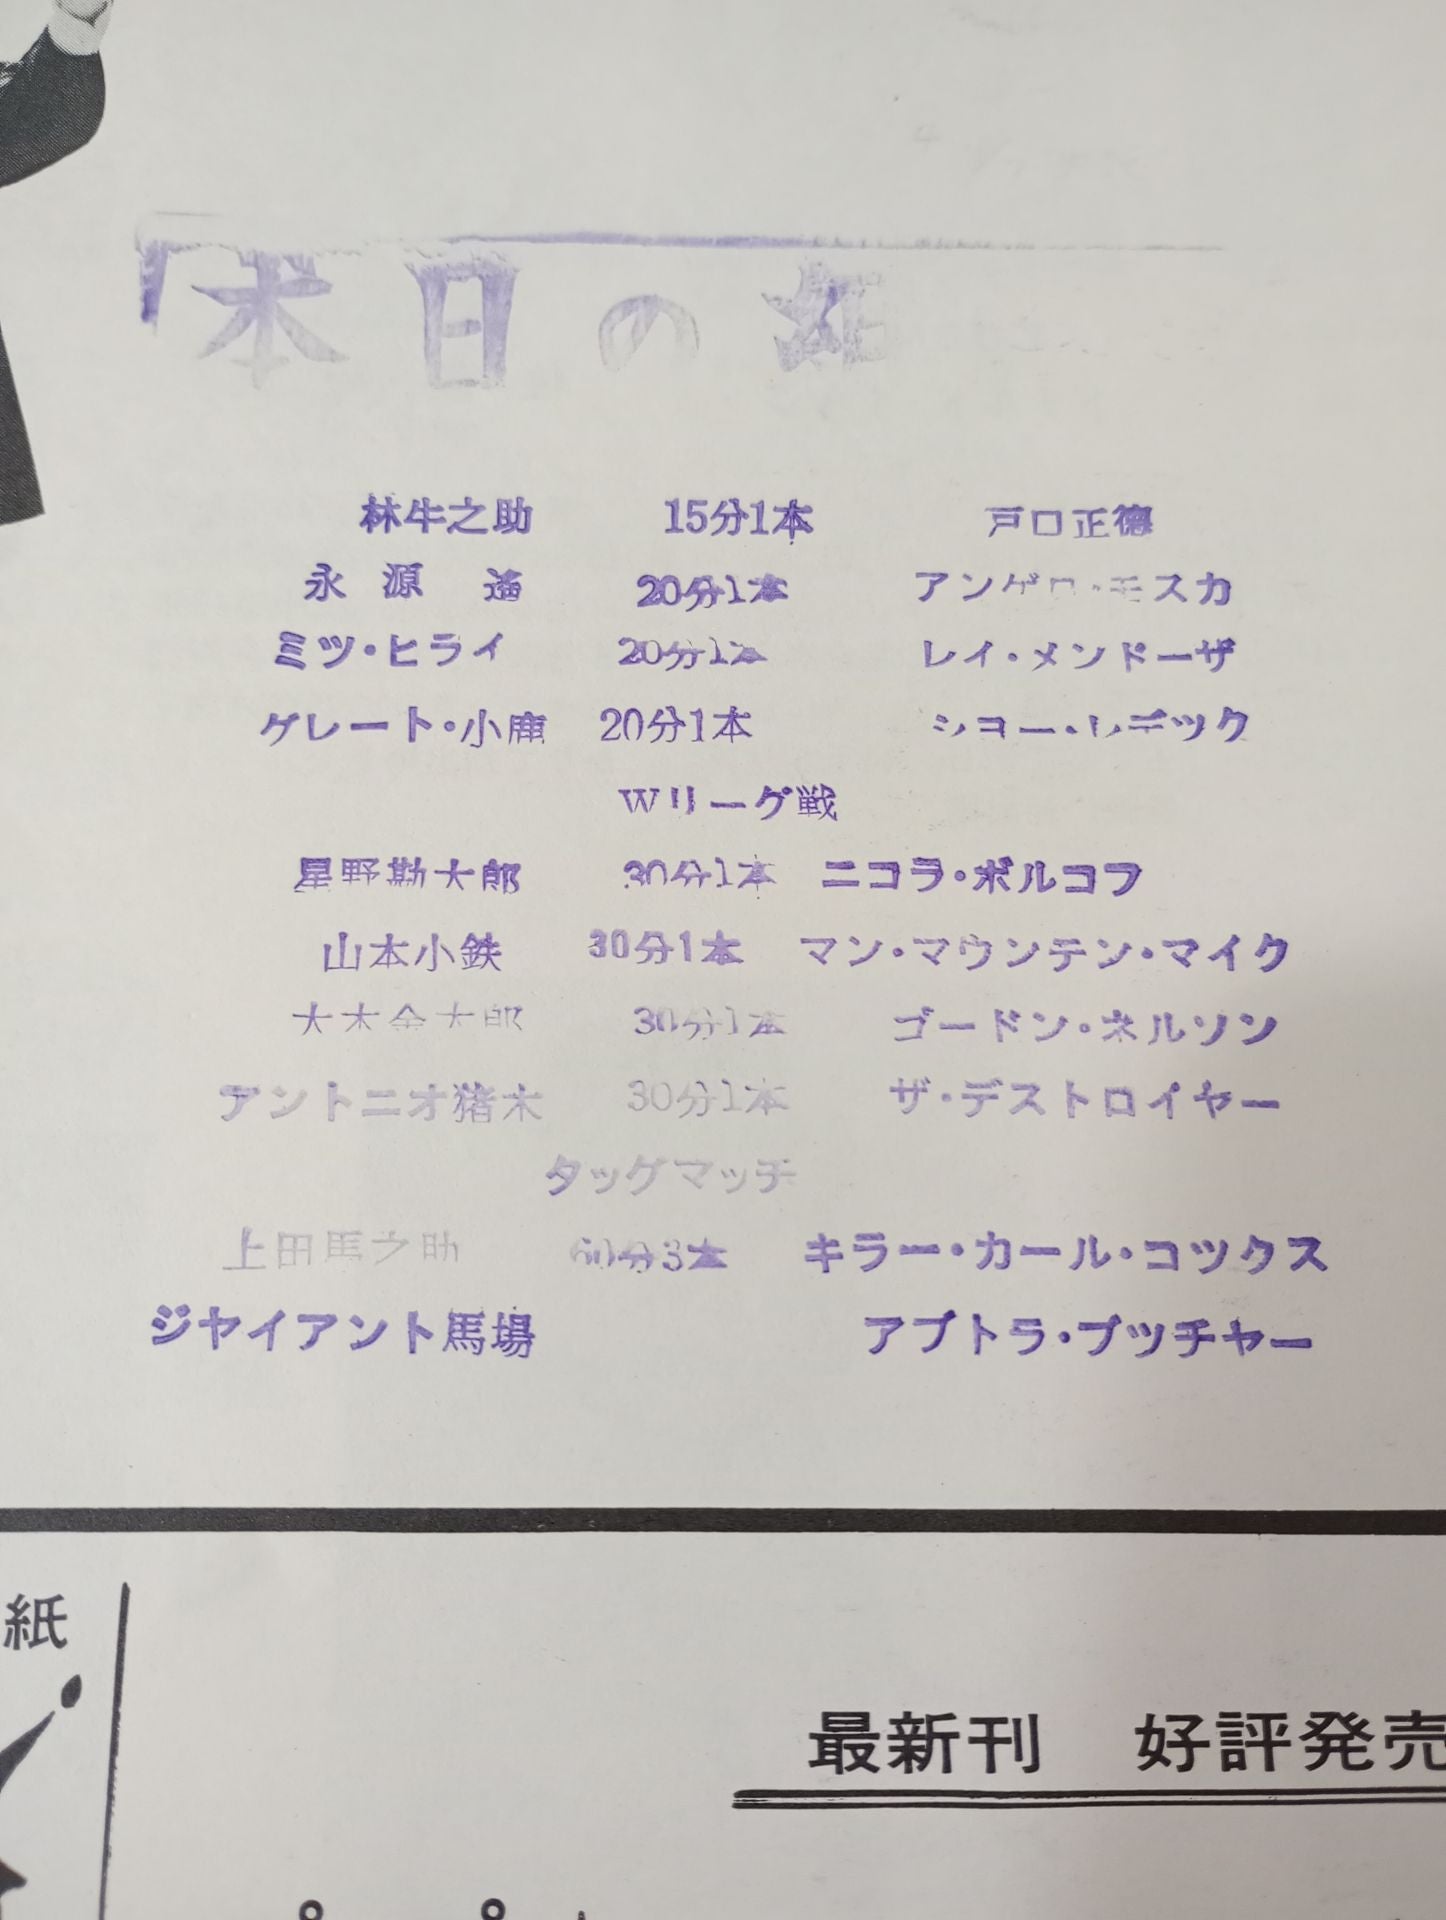 「本日の
林牛之助 15分1本 戸口正徳
永源遙 20分1本 アンゲロ・モスカ
ミツ・ヒライ 20分1本 レイ・メンドーザ
グレート・小鹿 20分1本
Wリーグ戦
星野勘太郎 30分1本 ニコラ・ボルコフ
山本小鉄 30分1本 マン・マウンテン・マイク
大木金太郎 30分1本 ゴードン・ネルソン
アントニオ猪木 30分1本 ザ・デストロイヤー
タッグマッチ
上田馬之助 60分3本 キラー・カール・コックス
ジヤイアント馬場 アブトラ・ブツチヤー
紙
最新刊 好評発売